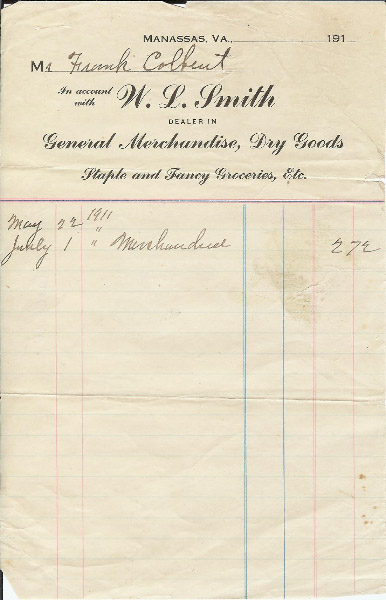 MANASSAS, VA., 191
Mr Frank Colbert
In account with W. L. Smith
DEALER IN
General Merchandise, Dry Goods
Staple and Fancy Groceries, Etc.
May 22 1911
July 1 " Merchandise 2 72